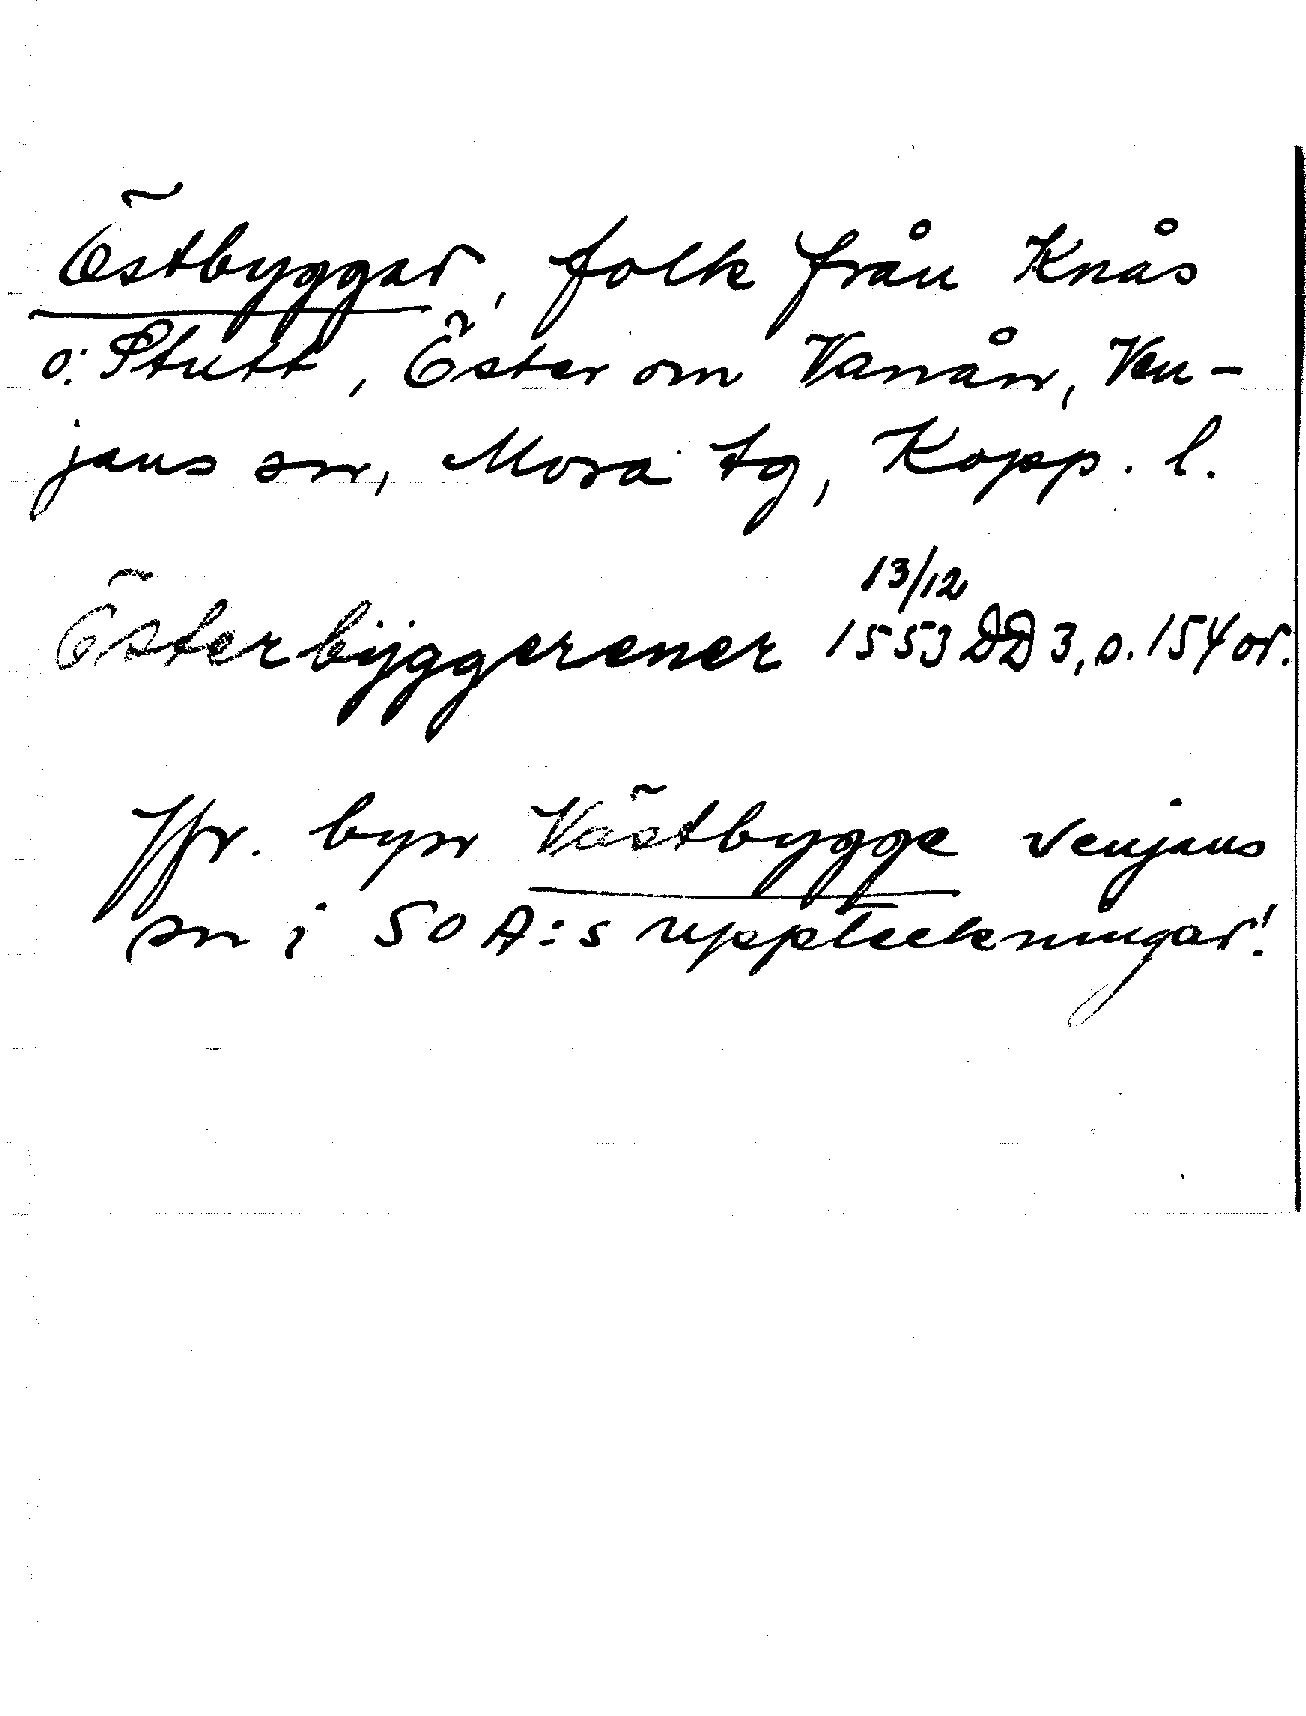 Östbyggar, folk från Knås
o. Stutt, Öster om Vanån, Ven-
jans sn, Mora tg, Kopp. l.
13/12
Österbÿggerener 1553 DD 3, s. 154 or.
Jfr. byn Västbygge Venjans
sn i SOA:s uppteckningar!